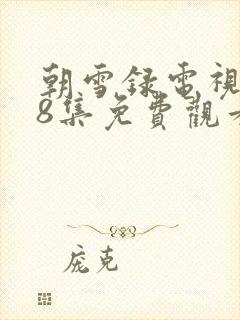 朝雪録電視
8集免費觀
庞克